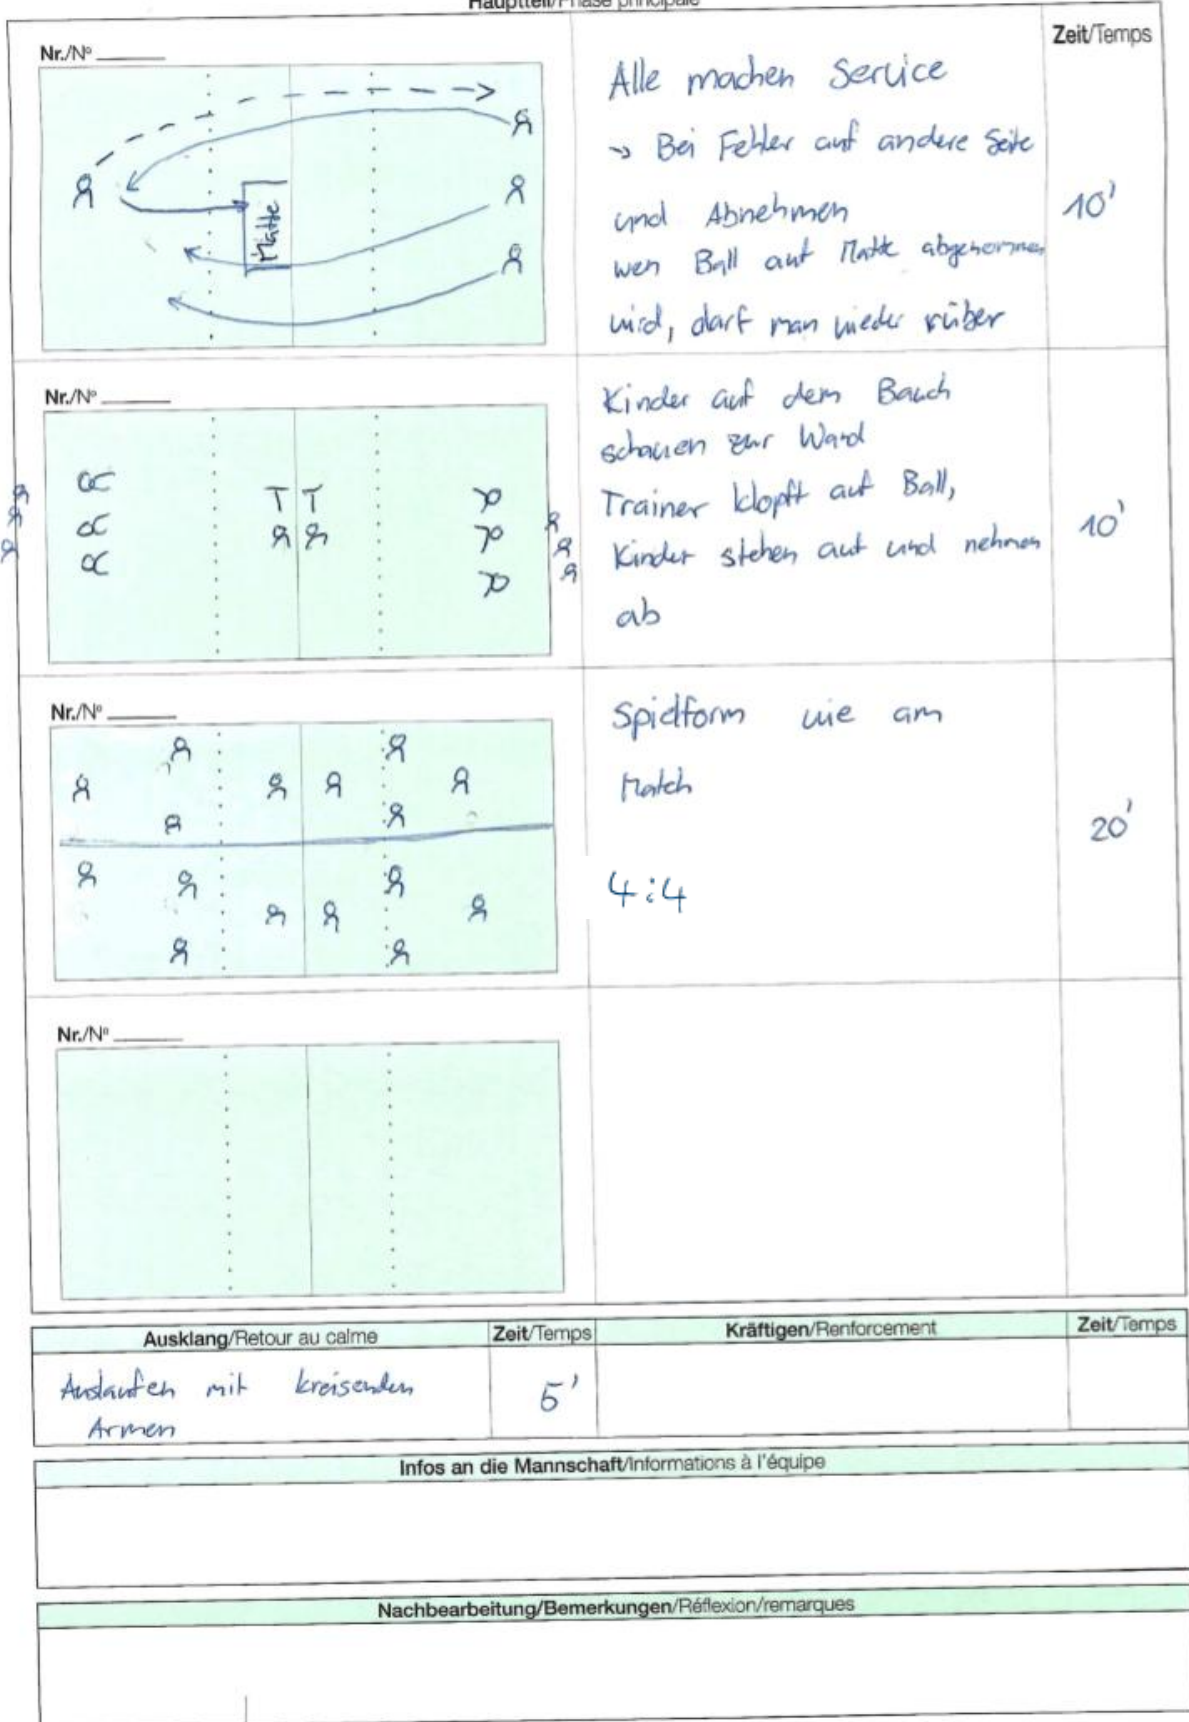 Hauptteil/Phase principale
Nr./Nº
Zeit/Temps
Matte
Alle machen Service
→ Bei Fehler auf andere Seite
und Abnehmen
wen Ball auf Matte abgenommen
wird, darf man wieder rüber
10'
Nr./Nº
T T
Kinder auf dem Bauch
schauen zur Wand
Trainer klopft auf Ball,
Kinder stehen auf und nehmen
ab
10'
Nr./Nº
Spielform wie am
Match
4:4
20'
Nr./Nº
Ausklang/Retour au calme
Zeit/Temps
Kräftigen/Renforcement
Zeit/Temps
Auslaufen mit kreisenden
Armen
5'
Infos an die Mannschaft/Informations à l'équipe
Nachbearbeitung/Bemerkungen/Réflexion/remarques